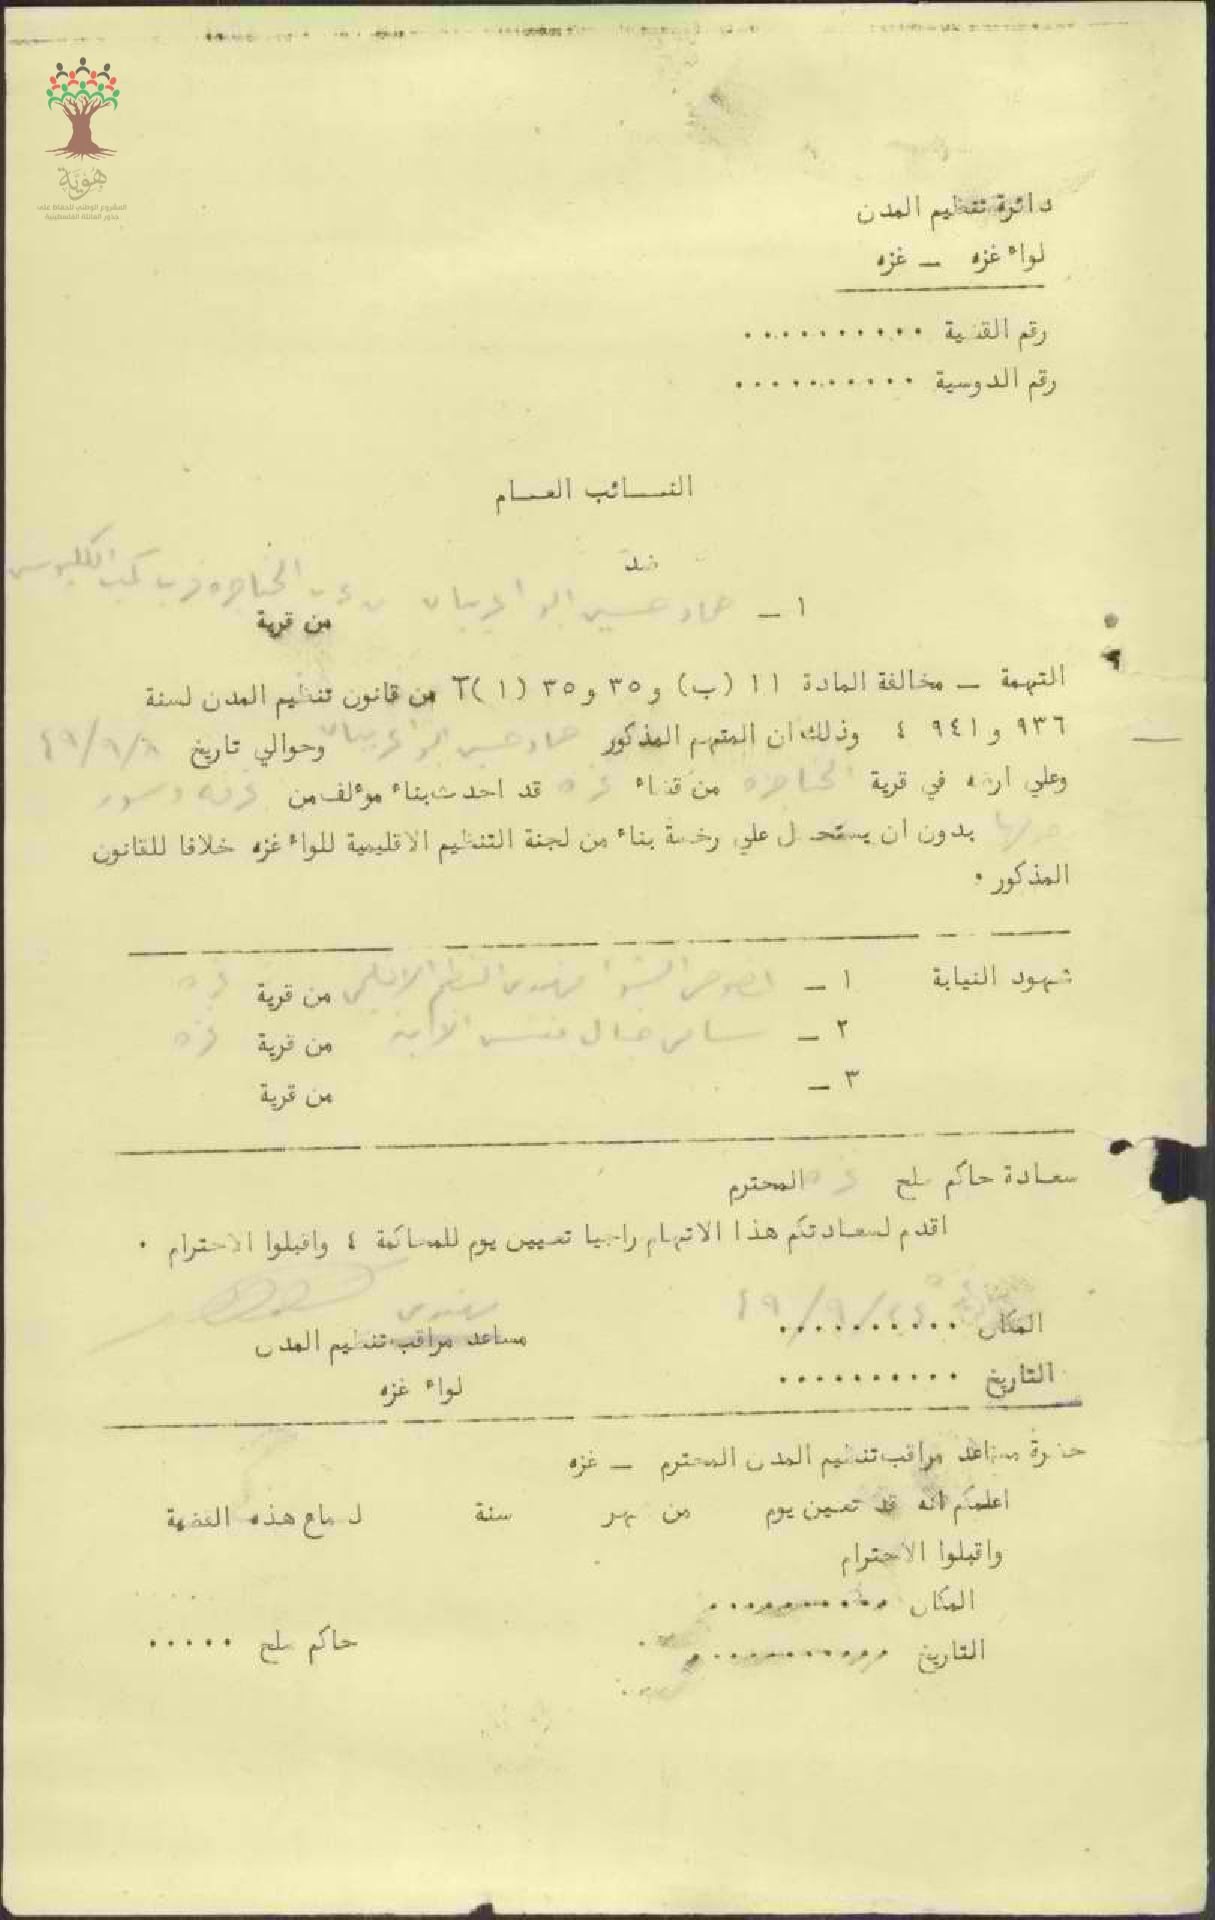 هُوِيَّة
المشروع الوطني للحفاظ على
جذور العائلة الفلسطينية
دائرة تنظيم المدن
لواء غزه – غزه
رقم القضية ..........
رقم الدوسية ..........
النـــائب العــام
ضد
١ – حماد حسين ابو من قرية
التهمة – مخالفة المادة ١١ (ب) و ٣٥ و ٣٥ (١) من قانون تنظيم المدن لسنة
٩٣٦ و ٩٤١ ٤ وذلك ان المتهم المذكور حماد حسين ابو وحوالي تاريخ
وعلي ارضه في قرية الخناجره من قضاء غزه قد احدث بناء موءلف من غرفه وسور
حولها بدون ان يستحصل علي رخصة بناء من لجنة التنظيم الاقليمية للواء غزه خلافا للقانون
المذكور .
شهود النيابة ١ – مهندس التنظيم الاقليمي من قرية غزه
٢ – سامي من قرية غزه
٣ – من قرية
سعادة حاكم صلح غزه المحترم
اقدم لسعادتكم هذا الاتهام راجيا تعيين يوم للمحاكمة ٤ واقبلوا الاحترام .
المكان .......... ٤٩/٩/٢٤
مهندس
مساعد مراقب تنظيم المدن
التاريخ ..........
لواء غزه
حضرة مساعد مراقب تنظيم المدن المحترم – غزه
اعلمكم انه قد تعين يوم من شهر سنة لسماع هذه القضية
واقبلوا الاحترام
المكان ..........
التاريخ .......... حاكم صلح .....